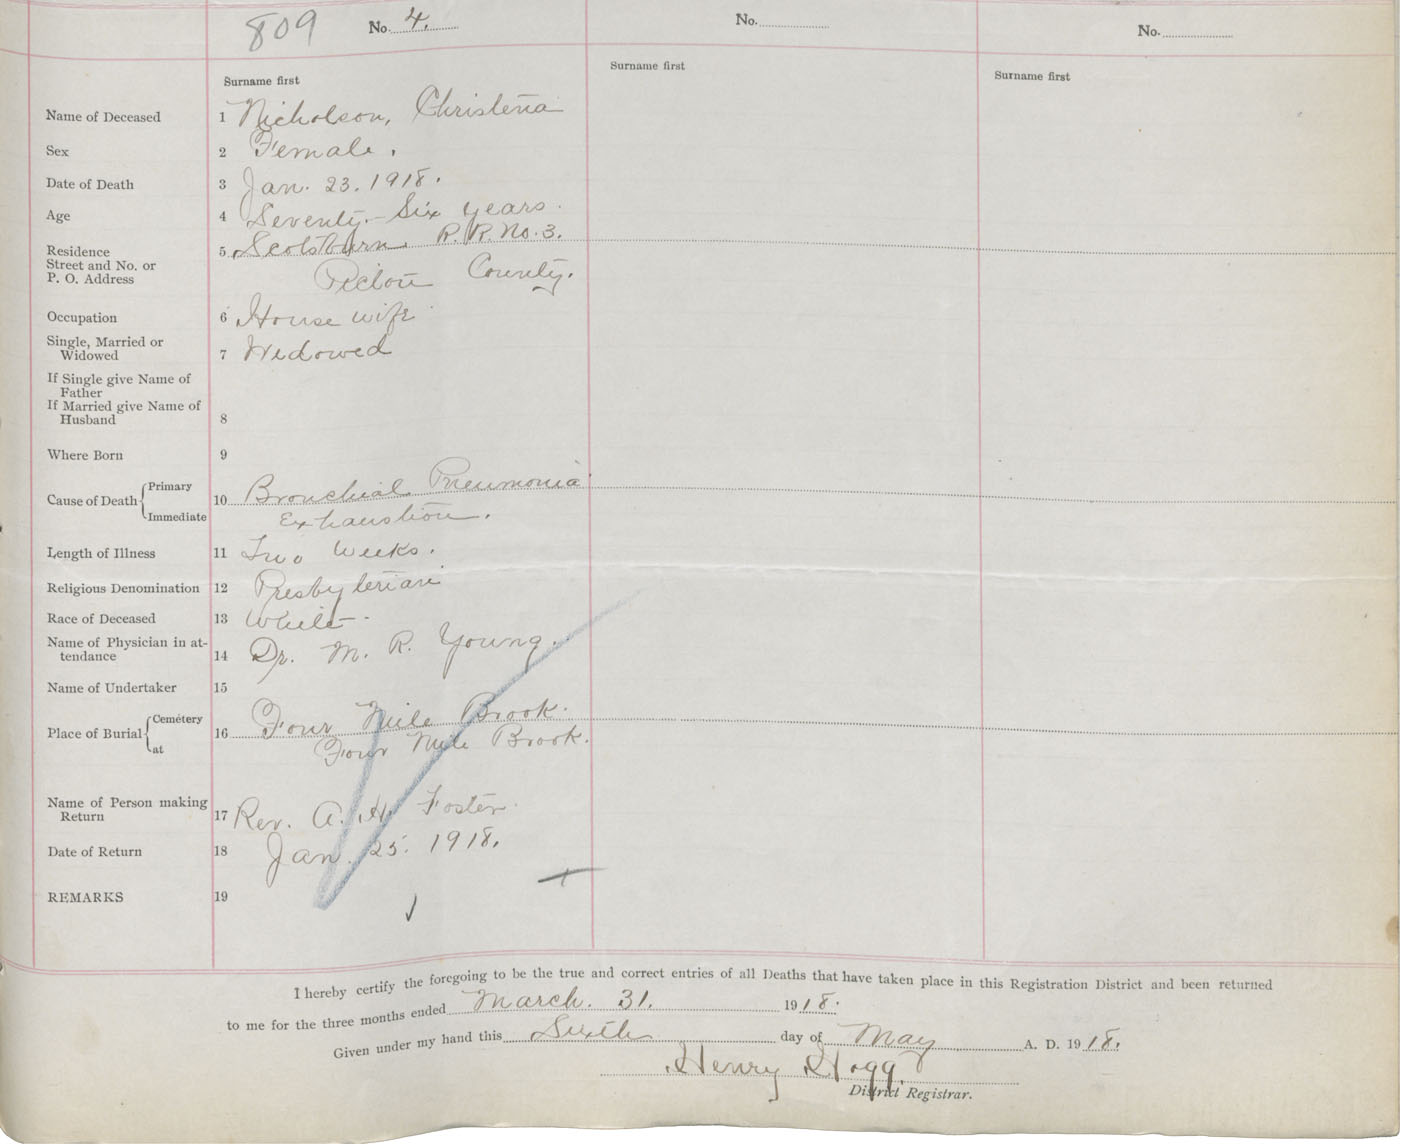 809 No. 4. No. No.
Surname first Surname first Surname first
Name of Deceased 1 Nicholson, Christena
Sex 2 Female.
Date of Death 3 Jan. 23. 1918.
Age 4 Seventy-Six years.
Residence 5 Scotsburn R. R. No. 3.
Street and No. or
P. O. Address Pictou County.
Occupation 6 House wife
Single, Married or
Widowed 7 Widowed
If Single give Name of
Father
If Married give Name of
Husband 8
Where Born 9
Cause of Death Primary 10 Bronchial Pneumonia
Immediate Exhaustion.
Length of Illness 11 Two Weeks.
Religious Denomination 12 Presbyterian
Race of Deceased 13 White
Name of Physician in at-
tendance 14 Dr. M. R. Young.
Name of Undertaker 15
Place of Burial Cemetery 16 Four Mile Brook.
at Four Mile Brook.
Name of Person making
Return 17 Rev. A. H. Foster
Date of Return 18 Jan. 25. 1918.
REMARKS 19
I hereby certify the foregoing to be the true and correct entries of all Deaths that have taken place in this Registration District and been returned
to me for the three months ended March. 31. 1918.
Given under my hand this Sixth day of May A. D. 1918.
Henry Hogg.
District Registrar.